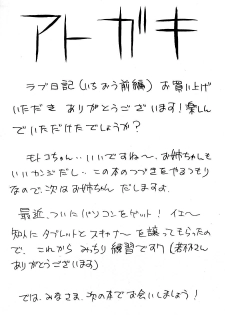 アトガキ
ラブ日記(いちおう前編)お買い上げ
いただき ありがとうございます!楽しん
でいただけたでしょうか?
モトコちゃん‥いいですね〜。お姉ちゃんも
いいカンジだし‥この本のつづきをやるつもり
なので、次はお姉ちゃん だしますよ。
最近、ついにパソコンをゲット! イエ〜
知人に タブレットと スキャナ〜 を譲ってもらったの
で、これから みっちり練習です7
ありがとうございます)
では、みなさま、次の本でお会いしましょう!